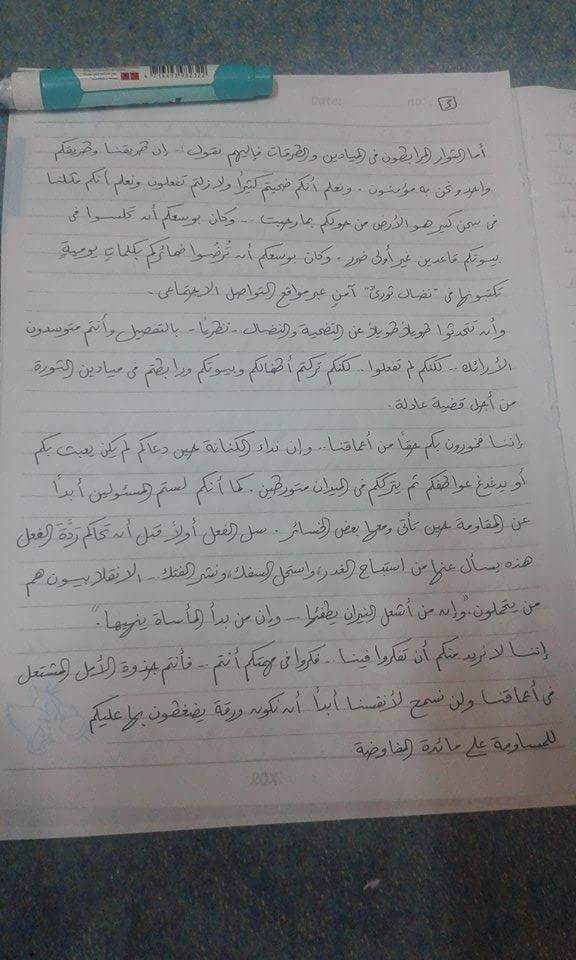 3
أما الثوار المرابطون فى الميادين والطرقات فإليهم نقول :. إن طريقنا وطريقكم
واحد ونحن به مؤمنون . ونعلم أنكم ضحيتم كثيرًا ولازلتم تفعلون ونعلم أنكم مثلنا
فى سجن كبير هو الأرض من حولكم بما رحبت ... وكان بوسعكم أن تجلسوا فى
بيوتكم قاعدين غير أولى ضرر . وكان بوسعكم أن تُرضُوا ضمائركم بكلماتٍ يوميةٍ
تكتبونها فى "نضال ثورىٍّ" آمنٍ عبر مواقع التواصل الاجتماعى .
وأن تتحدثوا طويلاً طويلاً عن التضحية والنضال - نظريًا - بالتفصيل وأنتم متوسدون
الأرائك .. لكنكم لم تفعلوا .. لكنكم تركتم أطفالكم وبيوتكم ورابطتم فى ميادين الثورة
من أجل قضية عادلة .
إننا فخورون بكم حقًا من أعماقنا .. وإن نداء الكنانة حين دعاكم لم يكن يعبث بكم
أو يدغدغ عواطفكم ثم يترككم فى الميدان متورطين . كما أنكم لستم المسئولين أبدًا
عن المقاومة حين تأتى ومعها بعض الخسائر . سل الفعل أولاً قبل أن تحاكم ردَّةَ الفعل
هذه يسأل عنها من استباح الغدر، واستحل السفك، ونشر الفتك .. الانقلابيون هم
من يتحملون . "وإنه من أشعل النيران يطفئها ... وإن من بدأ المأساة ينهيها"
إننا لا نريد منكم أن تفكروا فينا .. فكروا فى مهمتكم أنتم .. فأنتم جذوة الأمل المشتعل
فى أعماقنا ولن نسمح لأنفسنا أبدًا أن نكون ورقة يضغطون بها عليكم
للمساومة على مائدة المفاوضة